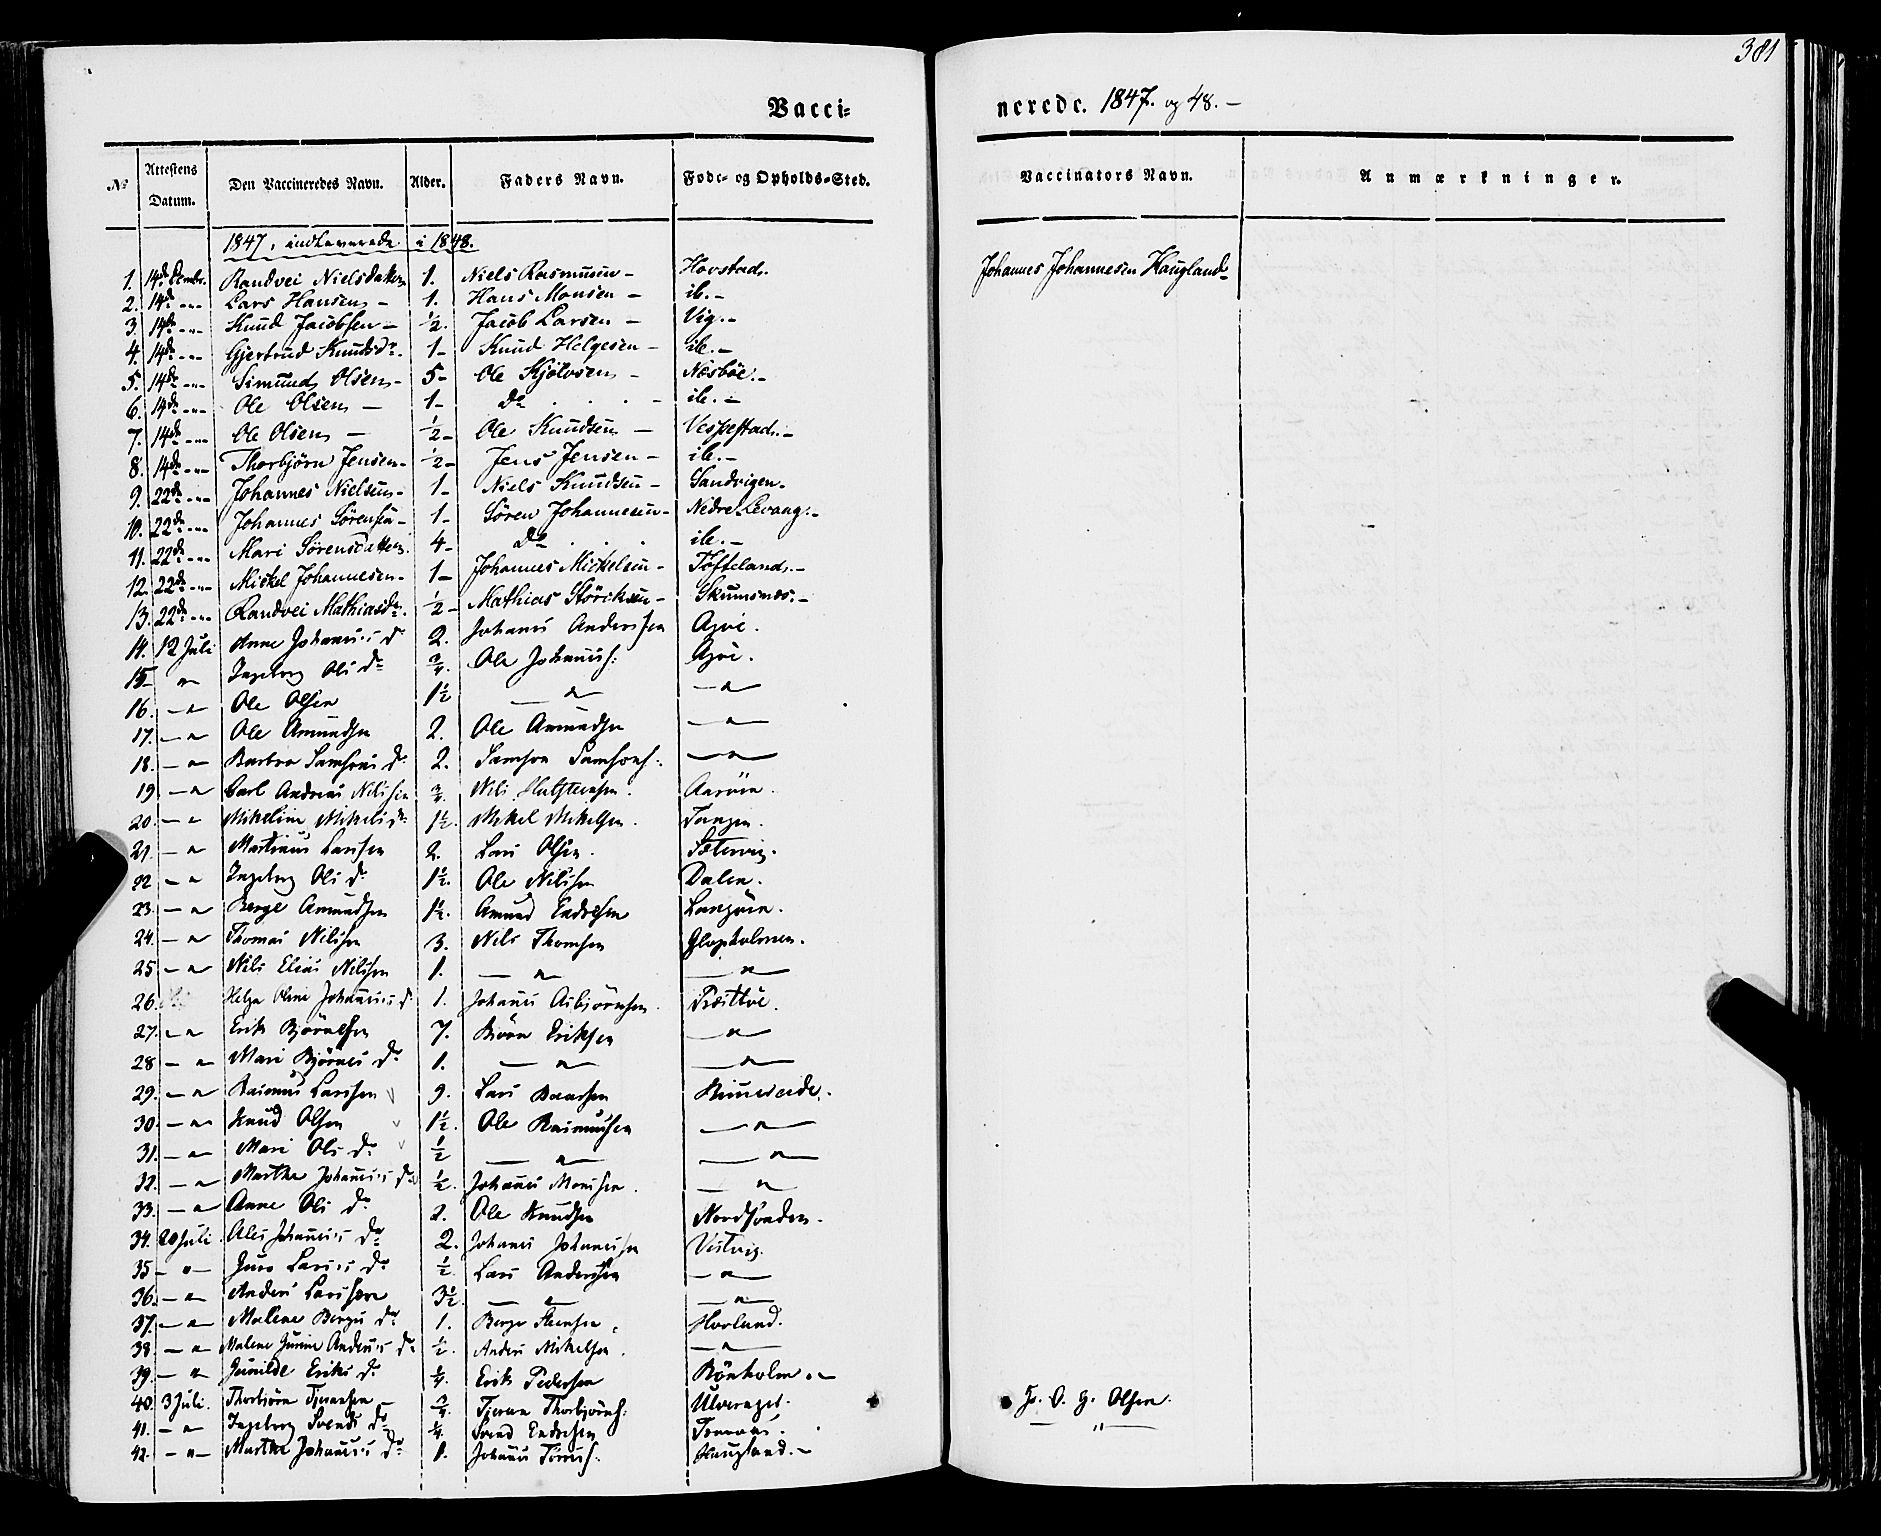 381
Vacci=
nerede. 1847. og 48. –
No Attestens Datum. Den Vaccineredes Navn. Alder. Faders Navn. Føde- og Opholds-Sted. Vaccinators Navn. Anmærkninger.
1847, indleverede i 1848.
1. 14de Decmbr. Randvei Nielsdatter 1. Niels Rasmusen – Hovstad. Johannes Johannesen Haugland
2. 14de -"- Lars Hansen – 1. Hans Monsen – ib. –
3. 14de -"- Knud Jacobsen – ½. Jacob Larsen – Vig. –
4. 14de -"- Gjertrud Knudsdr. 1 – Knud Helgesen – ib. –
5. 14de -"- Simund Olsen – 5 – Ole Kjølvsen – Næsbøe. –
6. 14de -"- Ole Olsen – 1 – Do . . . – ib. –
7. 14de -"- Ole Olsen – ½ – Ole Knudsen – Vespestad. –
8. 14de -"- Thorbjørn Jensen – ½ – Jens Jensen – ib. –
9. 22de -"- Johannes Nielsen – 1 – Niels Knudsen – Sandvigen.
10. 22de -"- Johannes Sørensen – 1 – Sören Johannesen – Nedre Levaag. –
11. 22de -"- Mari Sørensdatter. 4 – Do . . . ib. –
12. 22de -"- Mickel Johannesen – 1 – Johannes Mickelsen – Töfteland. –
13. 22de -"- Randvei Mathiasdr. ½ – Mathias Störcksen – Skumsnæs. –
14. 12 Juli Anne Johannes dr 2. Johannes Anderssen Agöe.
15 " Ingeborg Ols dr ¾. Ole Johannes: Agöe.
16. – " Ole Olsen 1½ – " – – " –
17. – " Ole Amundsen 2. Ole Amundsen – " –
18. – " Barbra Samsons dr 2. Samson Samsons: – " –
19 – " Carl Andreas Nilssen ¾. Nils Aaröen.
20. – " Mikeline Mikels dr 1½. Mikel Mikelsen. Tangen.
21. – " Martinus Larssen 2. Lars Olsen. Sætervig.
22 – " Ingeborg Ols dr 1½. Ole Nilssen Dalen.
23. – " Berge Amundsen 1½. Amund Endresen Langöen.
24. – " Thomas Nilssen 3. Nils Thomsen Glopholmen.
25 – " Nils Elias Nilssen 1. – " – – " –
26. Helga Oline Johannes dr 1. Johannes Asbjörnsen. Trættöe.
27. – " Erik Bjørnesen 7. Biörn Eriksen – " –
28 – " Mari Bjørnes dr 1. – " – – " –
29. – " Rasmus Larssen 9. Lars Baarsen
30. – " Knud Olsen 1½. Ole Rasmussen – " –
31. – " Mari Ols dr ½ – " – – " –
32. – " Martha Johannes dr ½. Johannes Monssen. – " –
33. – " Anne Ols dr 2. Ole Knudsen Nordsönden.
34. 20 Juli. Ales Johannes dr 2. Johannes Johannessen Vestvig.
35 – " – Guro Larses dr ½. Lars Anderssen – " –
36. – " Anders Larssen 3½. – " – – " –
37. – " Malene Berges dr 1. Berge Steensen. Hovland.
38. – " Malene Gurine Anders dr ½. Anders Mikelsen. – " –
39. – " Gunilde Eriks dr ¼. Erik Pedersen Rönholm. –
40. 3 Juli. Thorbjörn Tjeransen ¾. Tjeran Thorbjörns: Ulveraget. Js. O. G. Olsen.
41. – " Ingeborg Svends dr ¼. Svend Endresen "
42. – " – Martha Johannes dr 1. Johannes Haugland. –